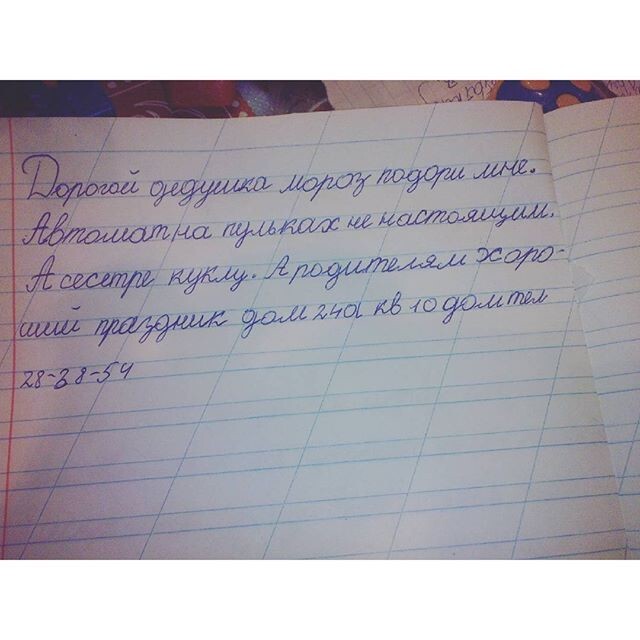 Дорогой дедушка мороз подари мне.
Автомат на пульках не настоящим.
А сесетре куклу. А родителям хоро-
ший праздник дом 24а кв 10 дом тел
28-38-54